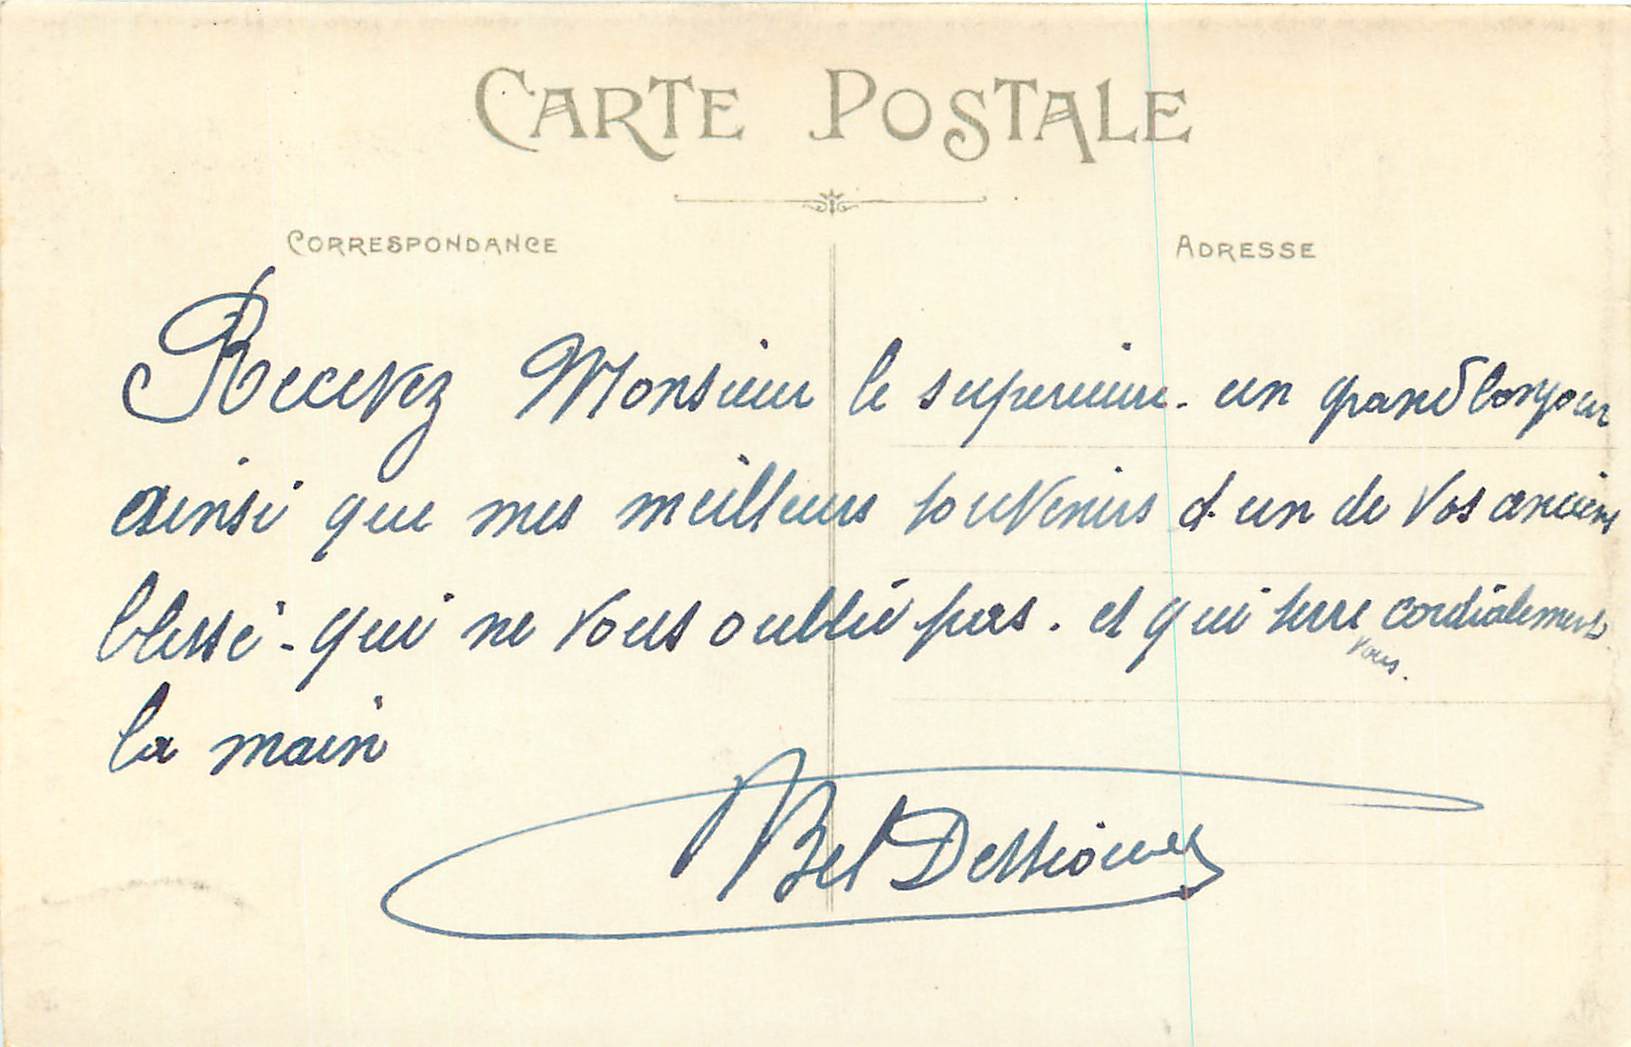 CARTE POSTALE
CORRESPONDANCE
ADRESSE
Recevez Monsieur le superieure. un grand bonjour
ainsi que mes meilleurs souvenirs d'un de vos anciens
blessé - qui ne vous oublié pas. et qui serre cordialement
vous.
la main